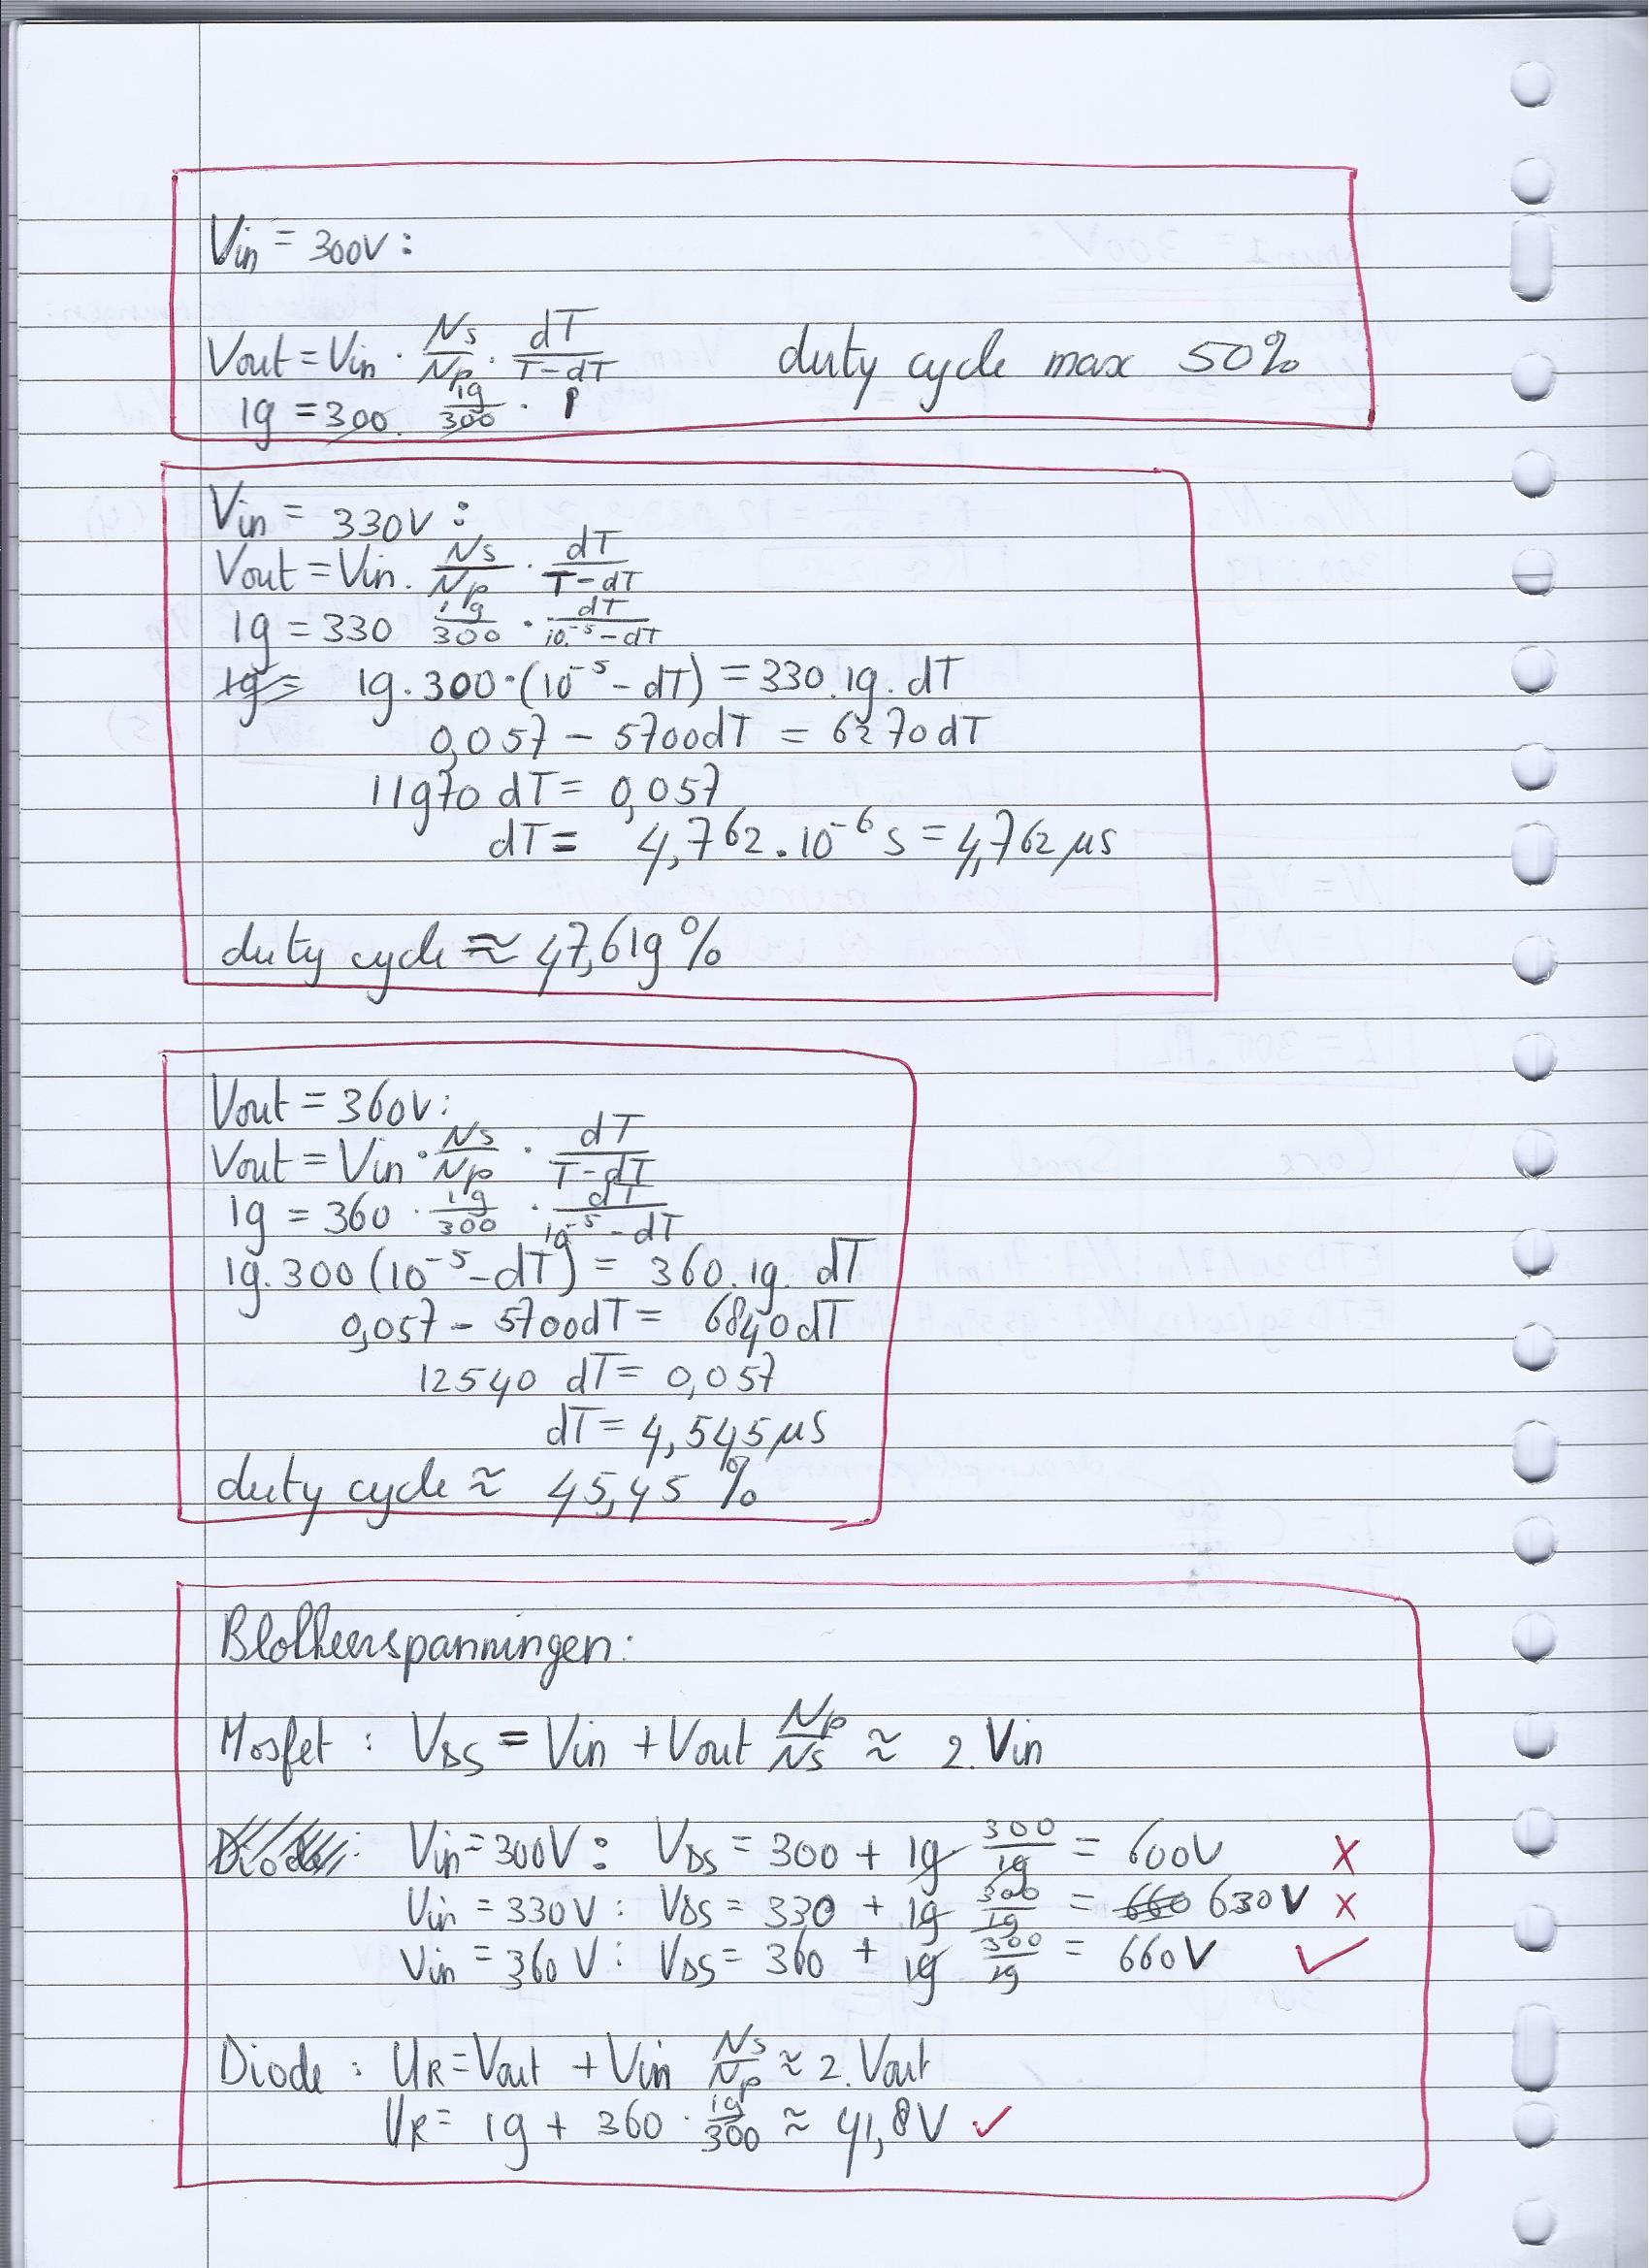 Vin = 300V :
Vout = Vin · Ns/Np · dT/(T-dT)    duty cycle max 50%
19 = 300 · 19/300 · 1
Vin = 330V :
Vout = Vin · Ns/Np · dT/(T-dT)
19 = 330 19/300 · dT/(10^-5 - dT)
19 = 19·300·(10^-5 - dT) = 330·19·dT
0,057 - 5700dT = 6270dT
11970 dT = 0,057
dT = 4,762·10^-6 s = 4,762 µs
duty cycle ≈ 47,619 %
Vout = 360V :
Vout = Vin · Ns/Np · dT/(T-dT)
19 = 360 · 19/300 · dT/(10^-5 - dT)
19·300 (10^-5 - dT) = 360·19·dT
0,057 - 5700dT = 6840dT
12540 dT = 0,057
dT = 4,545 µs
duty cycle ≈ 45,45 %
Blokkeerspanningen:
Mosfet : VDS = Vin + Vout Np/Ns ≈ 2·Vin
Diode : Vin = 300V : VDS = 300 + 19 300/19 = 600V X
Vin = 330V : VDS = 330 + 19 300/19 = 660 630V X
Vin = 360V : VDS = 360 + 19 300/19 = 660V ✓
Diode : UR = Vout + Vin Ns/Np ≈ 2·Vout
UR = 19 + 360 · 19/300 ≈ 41,8V ✓